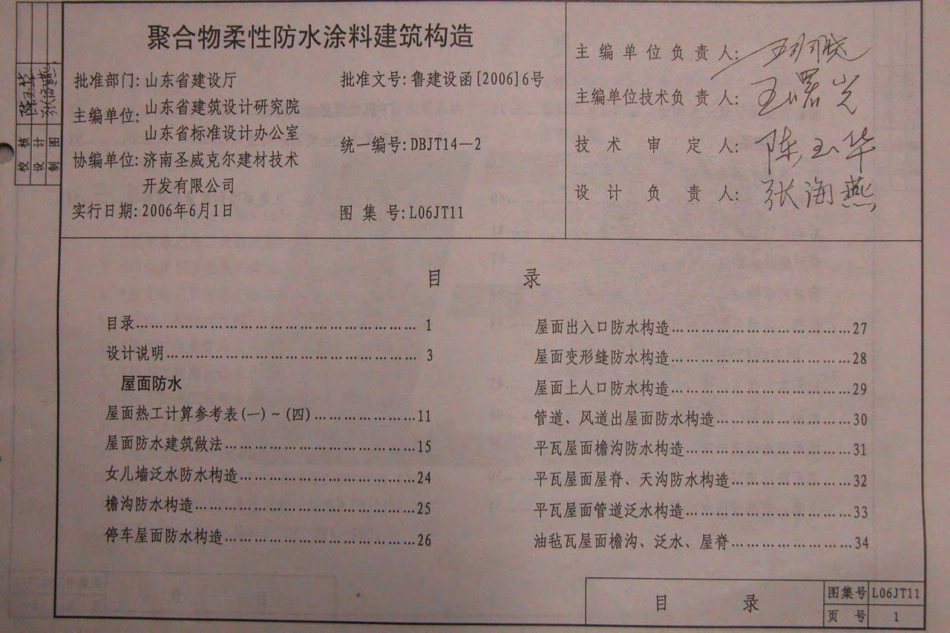 聚合物柔性防水涂料建筑构造
批准部门:山东省建设厅
批准文号:鲁建设函[2006]6号
主编单位:山东省建筑设计研究院
山东省标准设计办公室
统一编号:DBJT14—2
协编单位:济南圣威克尔建材技术
开发有限公司
实行日期:2006年6月1日
图 集 号:L06JT11
主编单位负责人:
主编单位技术负责人:王曙光
技术审定人:陈玉华
设计负责人:张海燕
校 核
设 计
制 图
目 录
目录……………………………………………… 1
设计说明………………………………………… 3
屋面防水
屋面热工计算参考表(一)~(四)………………11
屋面防水建筑做法………………………………15
女儿墙泛水防水构造……………………………24
檐沟防水构造……………………………………25
停车屋面防水构造………………………………26
屋面出入口防水构造……………………………27
屋面变形缝防水构造……………………………28
屋面上人口防水构造……………………………29
管道、风道出屋面防水构造……………………30
平瓦屋面檐沟防水构造…………………………31
平瓦屋面屋脊、天沟防水构造…………………32
平瓦屋面管道泛水构造…………………………33
油毡瓦屋面檐沟、泛水、屋脊…………………34
目 录
图集号 L06JT11
页 号 1